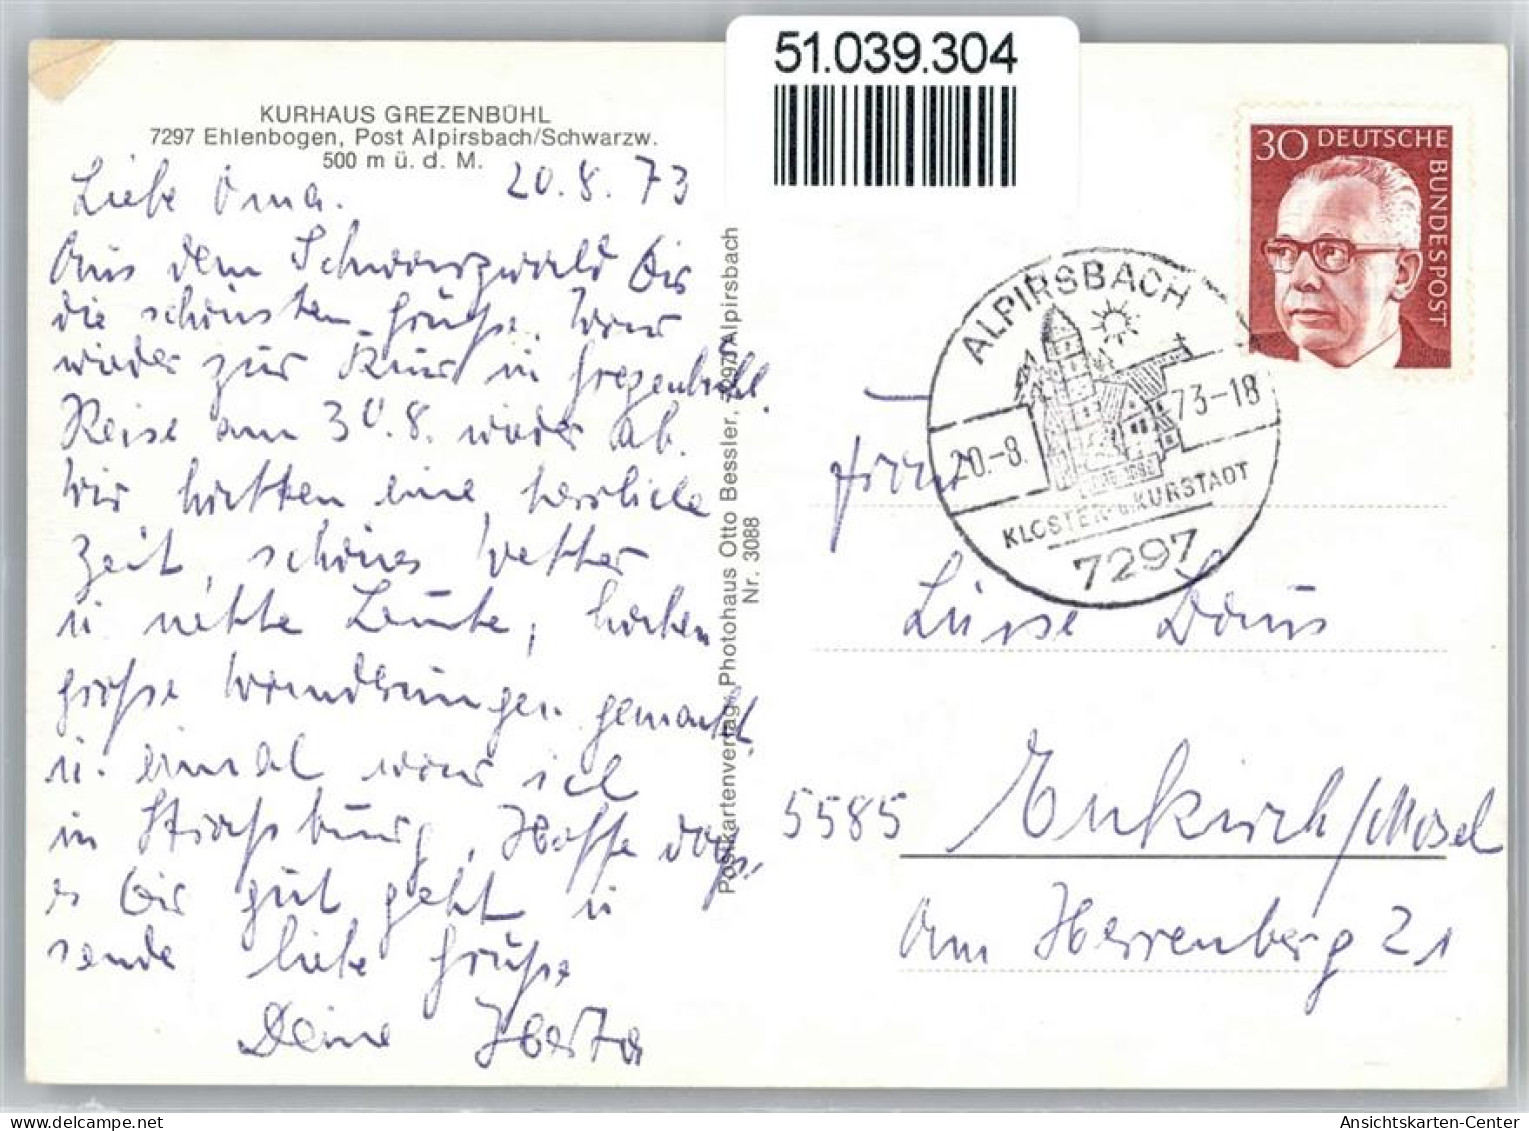 51.039.304
KURHAUS GREZENBÜHL
7297 Ehlenbogen, Post Alpirsbach/Schwarzw.
500 m ü. d. M.
20.8.73
Liebe Oma.
Aus dem Schwarzwald Dir
die schönsten Grüße. War
wieder zur Kur in Grezenbühl.
Reise am 30.8. wieder ab.
Wir hatten eine herrliche
Zeit, schönes Wetter
u nette Leute, haben
große Wanderungen gemacht
u. einmal war ich
in Straßburg. Hoffe daß
es Dir gut geht u
sende liebe Grüße
Deine Herta
Postkartenverlag Photohaus Otto Bessler, 7297 Alpirsbach
Nr. 3088
30 DEUTSCHE
BUNDESPOST
ALPIRSBACH
20.-8. 73-18
KLOSTER- u. KURSTADT
7297
Frau
Luise Daus
5585 Enkirch/Mosel
Am Herrenberg 21
Ansichtskarten-Center